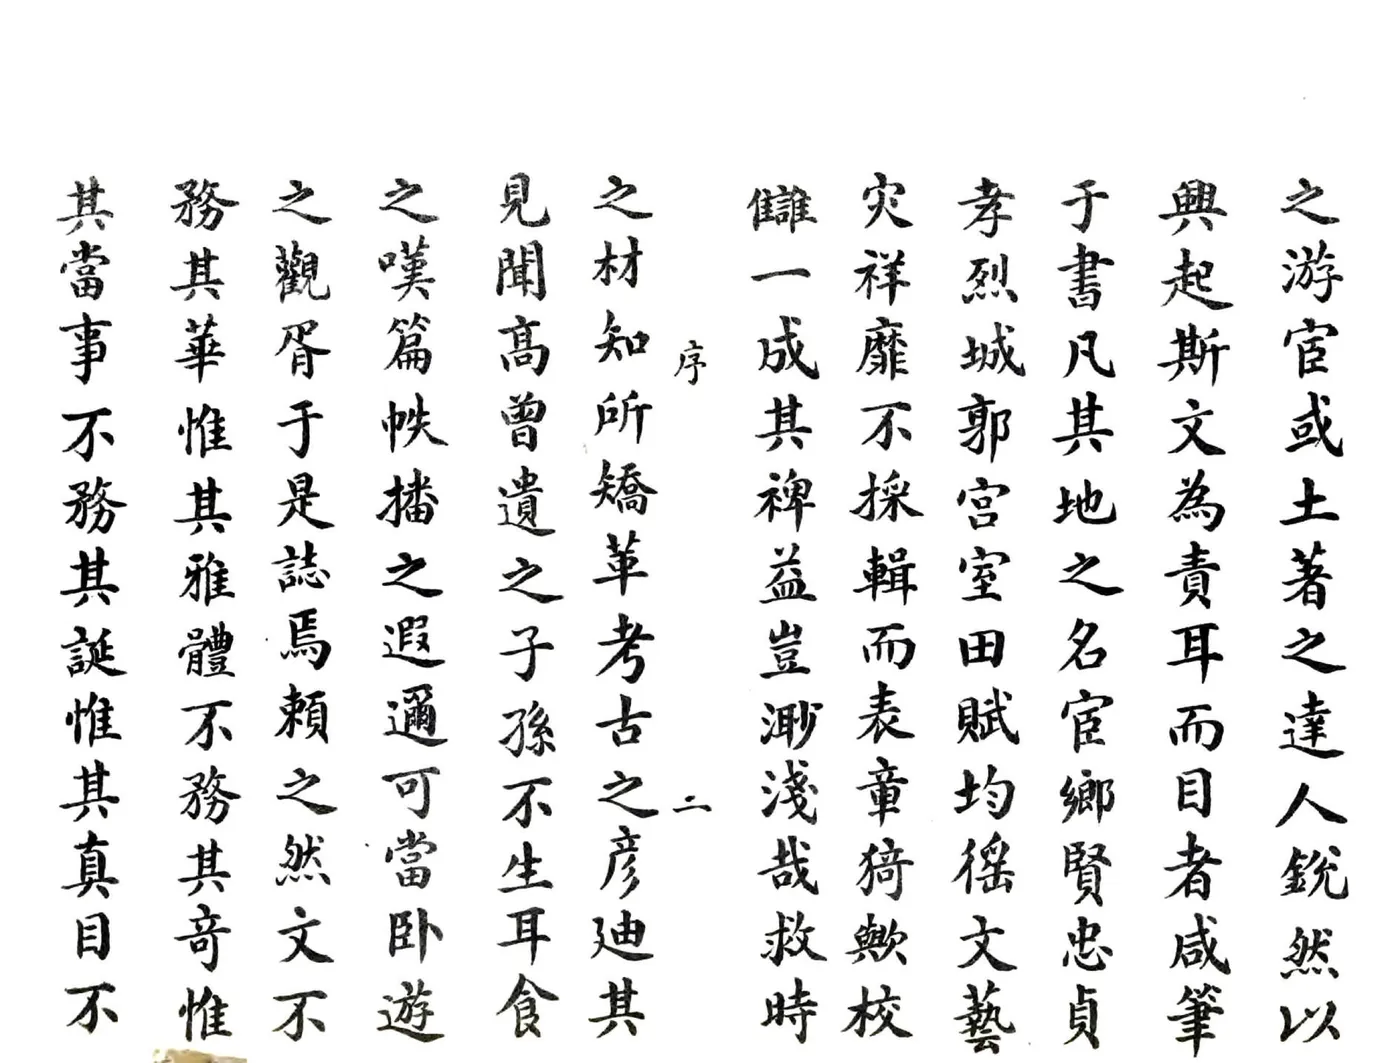 之游宦或土著之達人銳然以
興起斯文為責耳而目者咸筆
于書凡其地之名宦鄉賢忠貞
孝烈城郭宮室田賦均徭文藝
灾祥靡不採輯而表章猗歟校
讎一成其裨益豈渺淺哉救時
序
二
之材知所矯革考古之彥廸其
見聞高曾遺之子孫不生耳食
之嘆篇帙播之遐邇可當卧遊
之觀胥于是誌焉賴之然文不
務其華惟其雅體不務其奇惟
其當事不務其誕惟其真目不